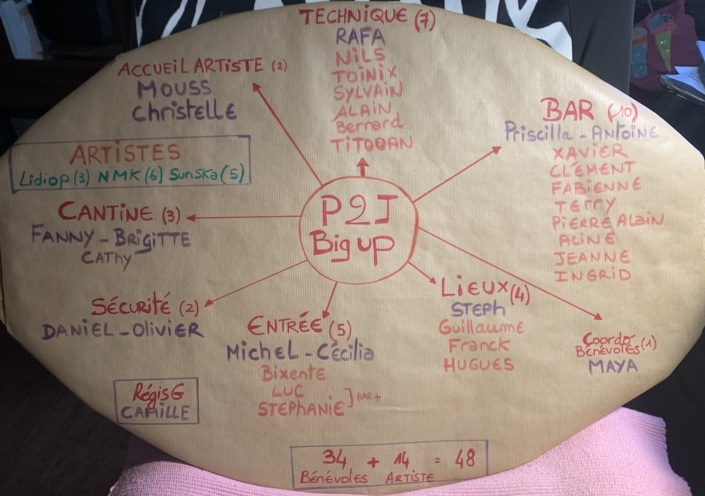 TECHNIQUE (7)
RAFA
NILS
TOINIX
SYLVAIN
ALAIN
Bernard
TITOOAN
ACCUEIL ARTISTE (2)
MOUSS
Christelle
ARTISTES
Lidiop (3) NMK (6) Sunska (5)
CANTINE (3)
FANNY - BRIGITTE
CATHY
SÉCURITÉ (2)
DANIEL - OLIVIER
RégisG
CAMILLE
P2J
Big up
BAR (10)
Priscilla - ANTOINE
XAVIER
CLÉMENT
FABIENNE
TERRY
PIERRE Alain
ALINE
JEANNE
INGRID
ENTRÉE (5)
Michel - Cécilia
Bixente
LUC
STEPHANIE ] BAR+
LIEUX (4)
STEPH
Guillaume
Franck
HUGUES
Coordo
Bénévoles (1)
MAYA
34 + 14 = 48
Bénévoles ARTISTE